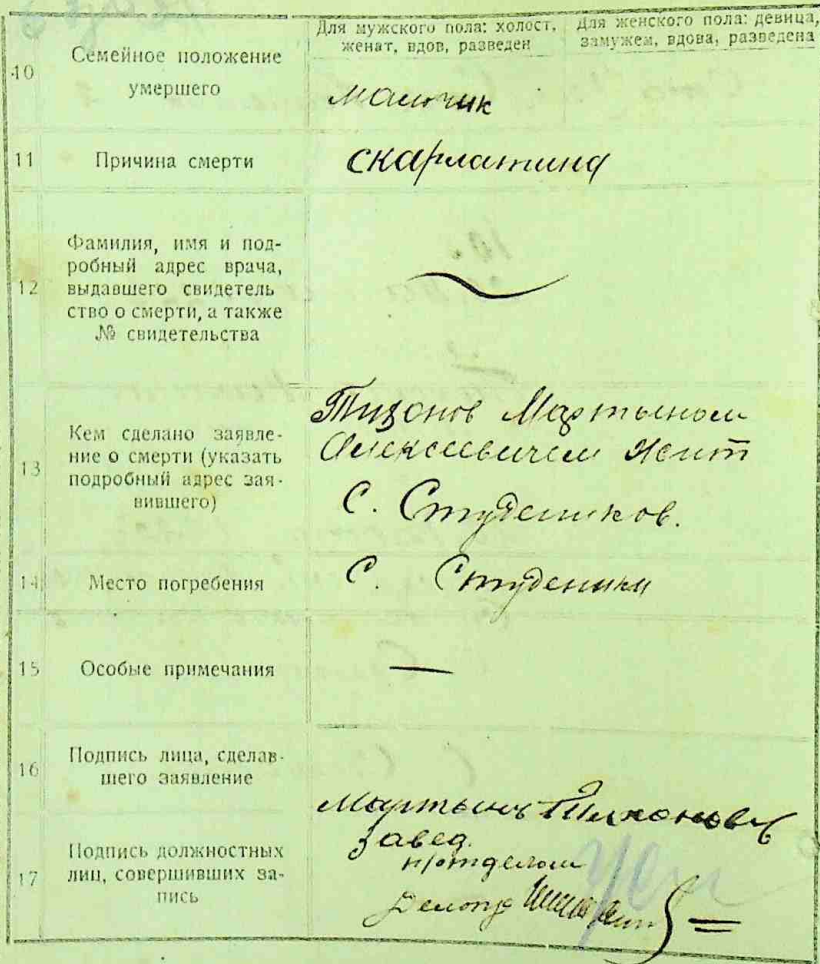 Для мужского пола: холост,
женат, вдов, разведен
Для женского пола: девица,
замужем, вдова, разведена
10
Семейное положение
умершего
мальчик
11
Причина смерти
скарлатина
12
Фамилия, имя и под-
робный адрес врача,
выдавшего свидетель
ство о смерти, а также
№ свидетельства
13
Кем сделано заявле-
ние о смерти (указать
подробный адрес зая-
вившего)
Мартыном
Алексеевичем жит
С. Студеников.
14
Место погребения
С. Студеники
15
Особые примечания
—
16
Подпись лица, сделав-
шего заявление
Мартынъ Тихоновъ
17
Подпись должностных
лиц, совершивших за-
пись
Завед.
п/отделом
Делопр